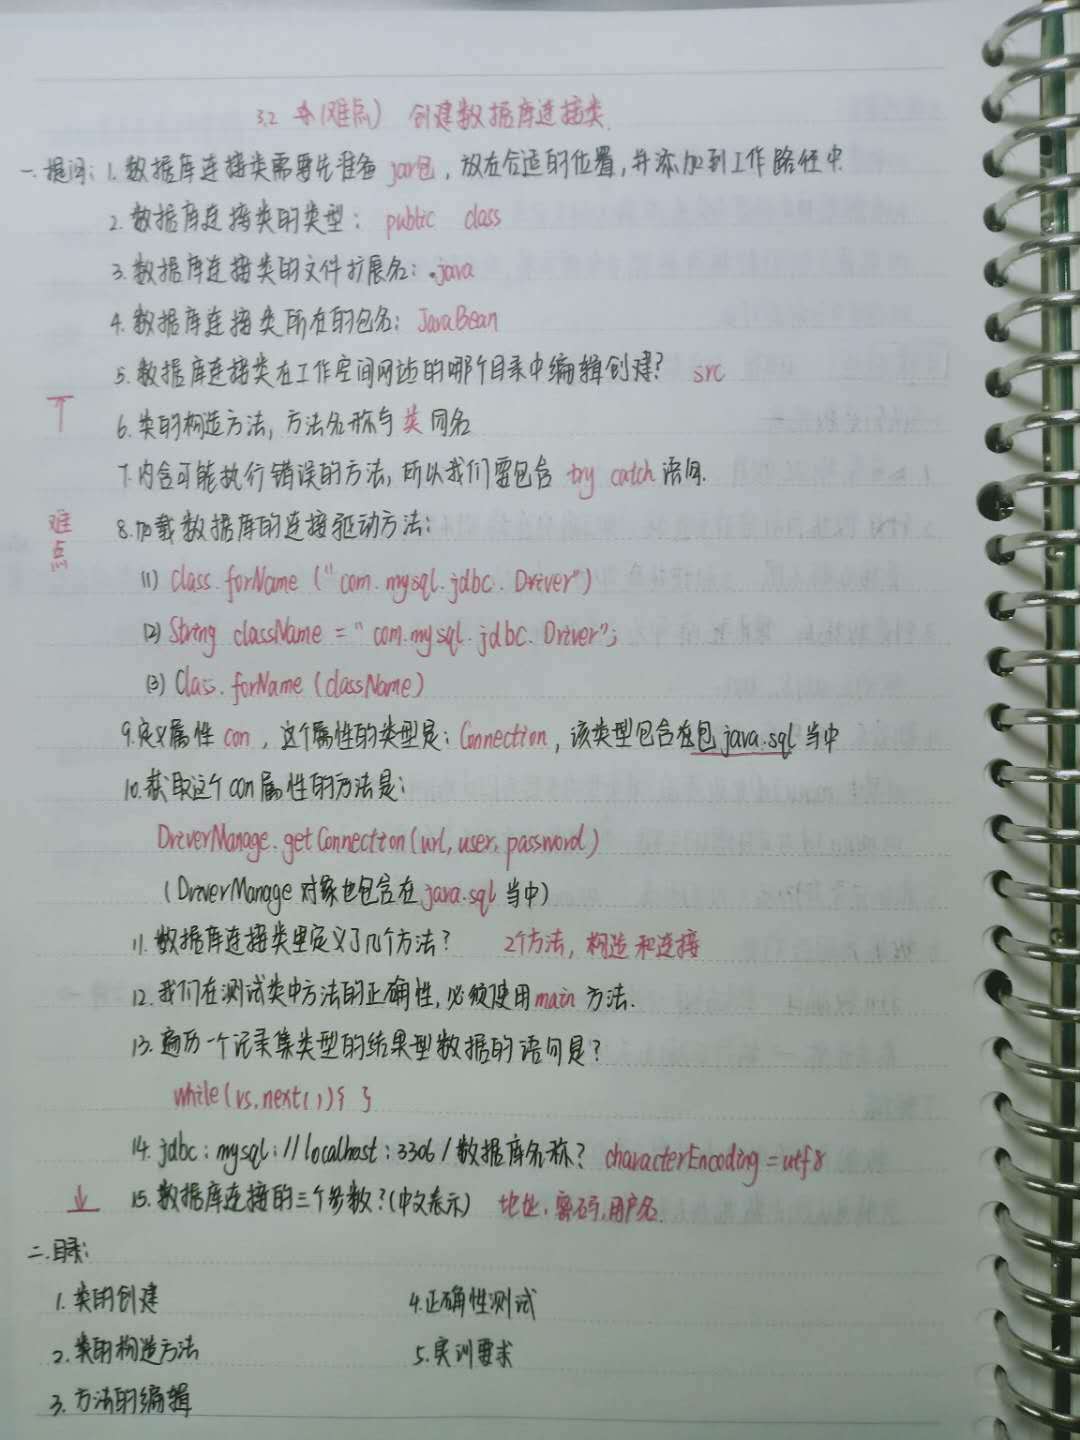 3.2 (难点) 创建数据库连接类
一.提问: 1.数据库连接类需要先准备 jar包, 放在合适的位置,并添加到工作路径中.
2.数据库连接类的类型: public class
3.数据库连接类的文件扩展名: .java
4.数据库连接类所在的包名: JavaBean
5.数据库连接类在工作空间网站的哪个目录中编辑创建? src
6.类的构造方法,方法名称与类同名
7.内含可能执行错误的方法,所以我们需包含 try catch 语句.
难点
8.加载数据库的连接驱动方法:
(1) Class.forName ("com.mysql.jdbc.Driver")
(2) String className = "com.mysql.jdbc.Driver";
(3) Class.forName (className)
9.定义属性 con, 这个属性的类型是: Connection, 该类型包含在包 java.sql 当中
10.获取这个con属性的方法是:
DriverManage.getConnection(url,user,password)
(DriverManage 对象也包含在 java.sql 当中)
11.数据库连接类里定义了几个方法? 2个方法, 构造和连接
12.我们在测试类中方法的正确性,必须使用main 方法.
13.遍历一个记录集类型的结果型数据的语句是?
while(rs.next()){ }
14.jdbc:mysql://localhost:3306/数据库名称? characterEncoding=utf8
15.数据库连接的三个参数?(中文表示) 地址.密码.用户名.
二.目录:
1.类的创建 4.正确性测试
2.类的构造方法 5.实训要求
3.方法的编辑